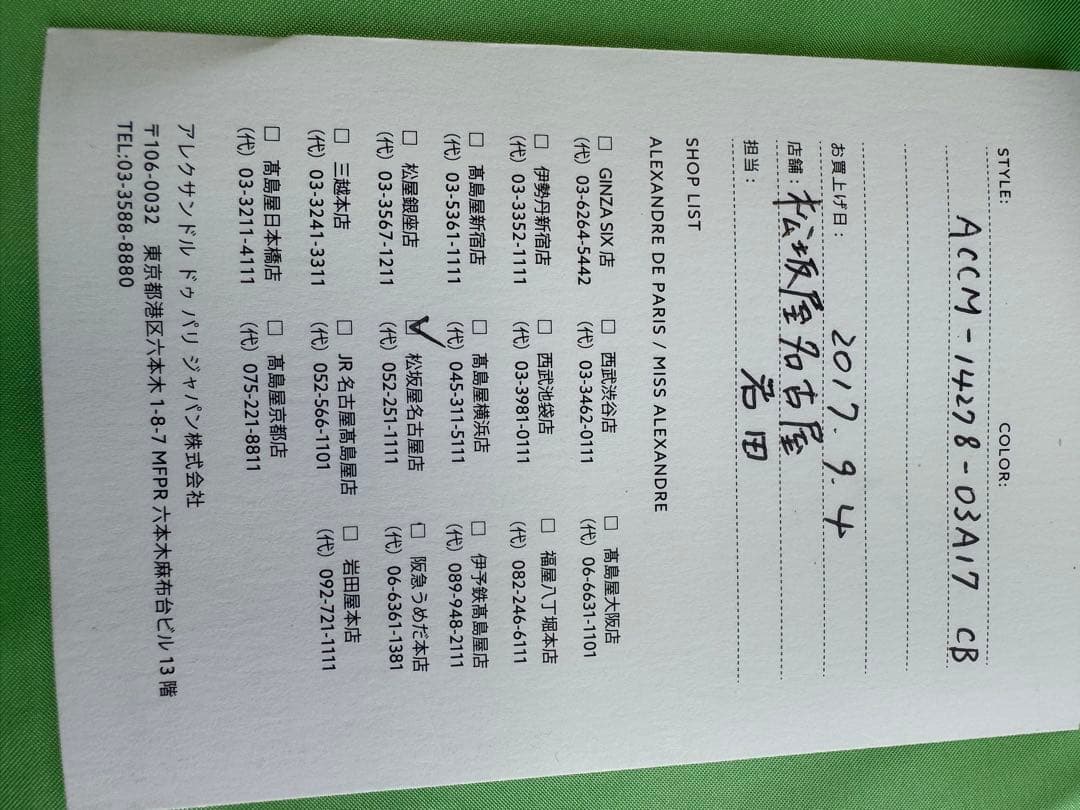 STYLE: COLOR:
ACCM-14278-03A17 CB
お買上げ日: 2017.9.4
店舗: 松坂屋名古屋
担当: 岩田
SHOP LIST
ALEXANDRE DE PARIS / MISS ALEXANDRE
□ GINZA SIX店 □ 西武渋谷店 □ 髙島屋大阪店
(代) 03-6264-5442 (代) 03-3462-0111 (代) 06-6631-1101
□ 伊勢丹新宿店 □ 西武池袋店 □ 福屋八丁堀本店
(代) 03-3352-1111 (代) 03-3981-0111 (代) 082-246-6111
□ 髙島屋新宿店 □ 髙島屋横浜店 □ 伊予鉄髙島屋店
(代) 03-5361-1111 (代) 045-311-5111 (代) 089-948-2111
□ 松屋銀座店 ☑ 松坂屋名古屋店 □ 阪急うめだ本店
(代) 03-3567-1211 (代) 052-251-1111 (代) 06-6361-1381
□ 三越本店 □ JR名古屋髙島屋店 □ 岩田屋本店
(代) 03-3241-3311 (代) 052-566-1101 (代) 092-721-1111
□ 髙島屋日本橋店 □ 髙島屋京都店
(代) 03-3211-4111 (代) 075-221-8811
アレクサンドル ドゥ パリ ジャパン株式会社
〒106-0032 東京都港区六本木 1-8-7 MFPR 六本木麻布台ビル 13 階
TEL:03-3588-8880